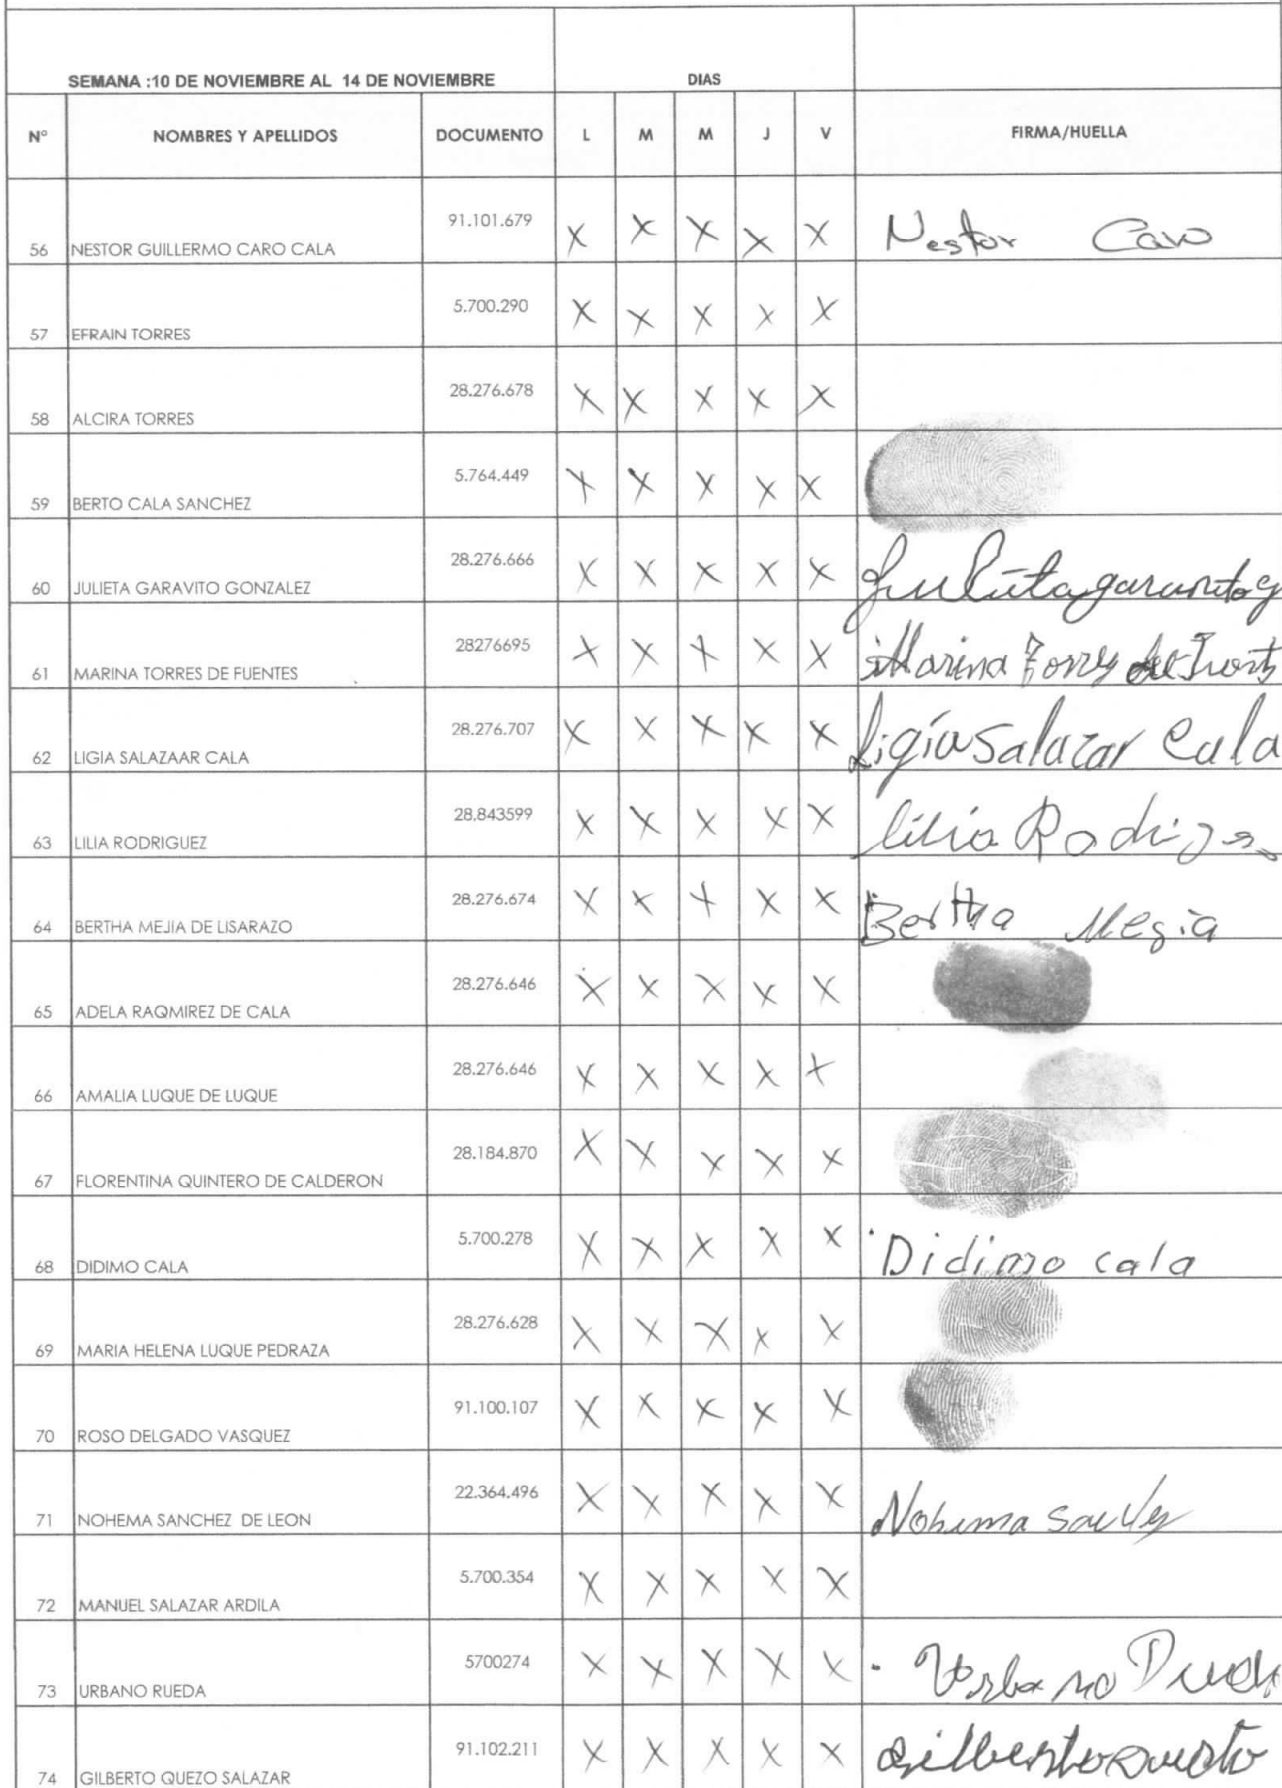 SEMANA :10 DE NOVIEMBRE AL 14 DE NOVIEMBRE DIAS
N° NOMBRES Y APELLIDOS DOCUMENTO L M M J V FIRMA/HUELLA
56 NESTOR GUILLERMO CARO CALA 91.101.679 X X X X X Nestor Caro
57 EFRAIN TORRES 5.700.290 X X X X X
58 ALCIRA TORRES 28.276.678 X X X X X
59 BERTO CALA SANCHEZ 5.764.449 X X X X X
60 JULIETA GARAVITO GONZALEZ 28.276.666 X X X X X
61 MARINA TORRES DE FUENTES 28276695 X X X X X Marina Torres de
62 LIGIA SALAZAAR CALA 28.276.707 X X X X X Ligia Salazar Cala
63 LILIA RODRIGUEZ 28.843599 X X X X X lilia
64 BERTHA MEJIA DE LISARAZO 28.276.674 X X X X X Bertha Megia
65 ADELA RAQMIREZ DE CALA 28.276.646 X X X X X
66 AMALIA LUQUE DE LUQUE 28.276.646 X X X X X
67 FLORENTINA QUINTERO DE CALDERON 28.184.870 X X X X X
68 DIDIMO CALA 5.700.278 X X X X X Didimo cala
69 MARIA HELENA LUQUE PEDRAZA 28.276.628 X X X X X
70 ROSO DELGADO VASQUEZ 91.100.107 X X X X X
71 NOHEMA SANCHEZ DE LEON 22.364.496 X X X X X Nohema
72 MANUEL SALAZAR ARDILA 5.700.354 X X X X X
73 URBANO RUEDA 5700274 X X X X X Urbano
74 GILBERTO QUEZO SALAZAR 91.102.211 X X X X X Gilberto